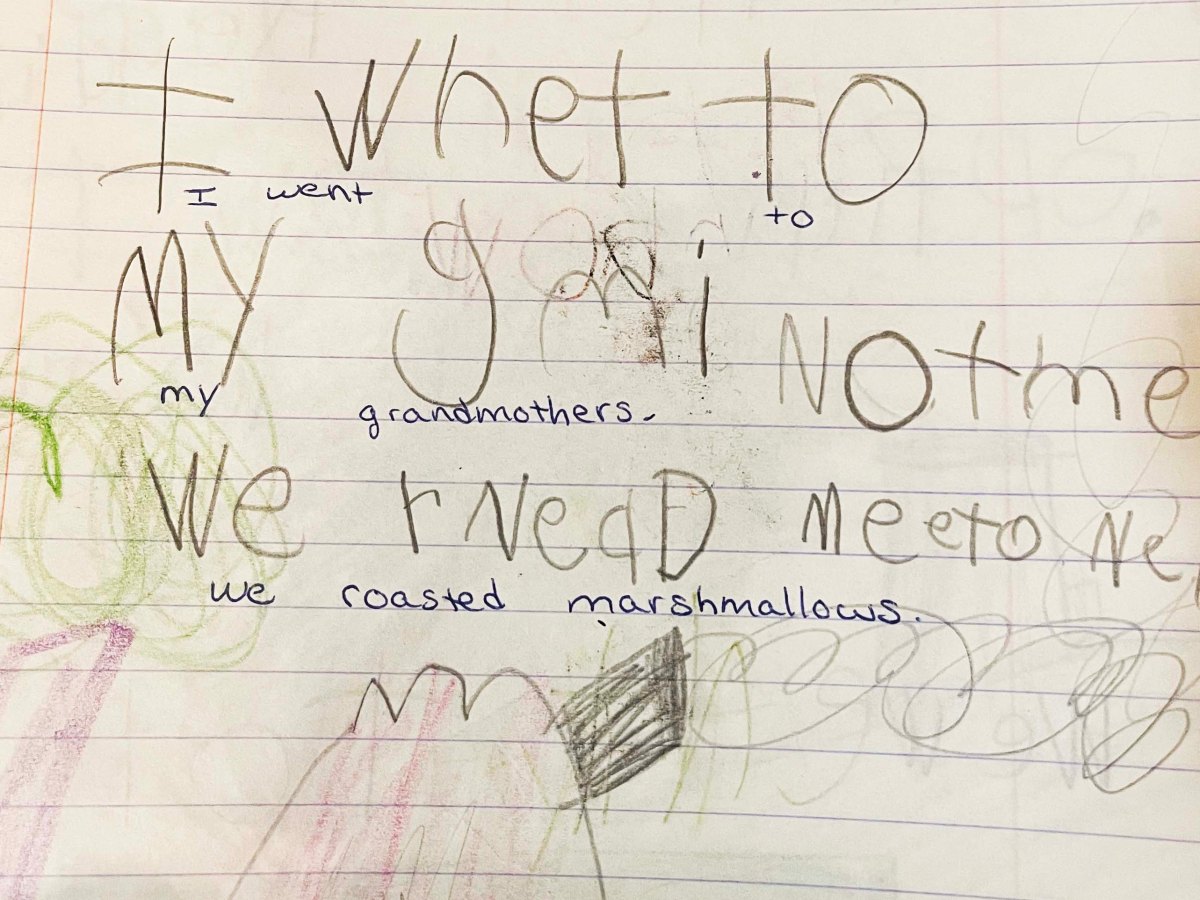 I Whet to
I went to
MY gani Notme
my grandmothers.
We rNeqD MeetoNe
we roasted marshmallows.